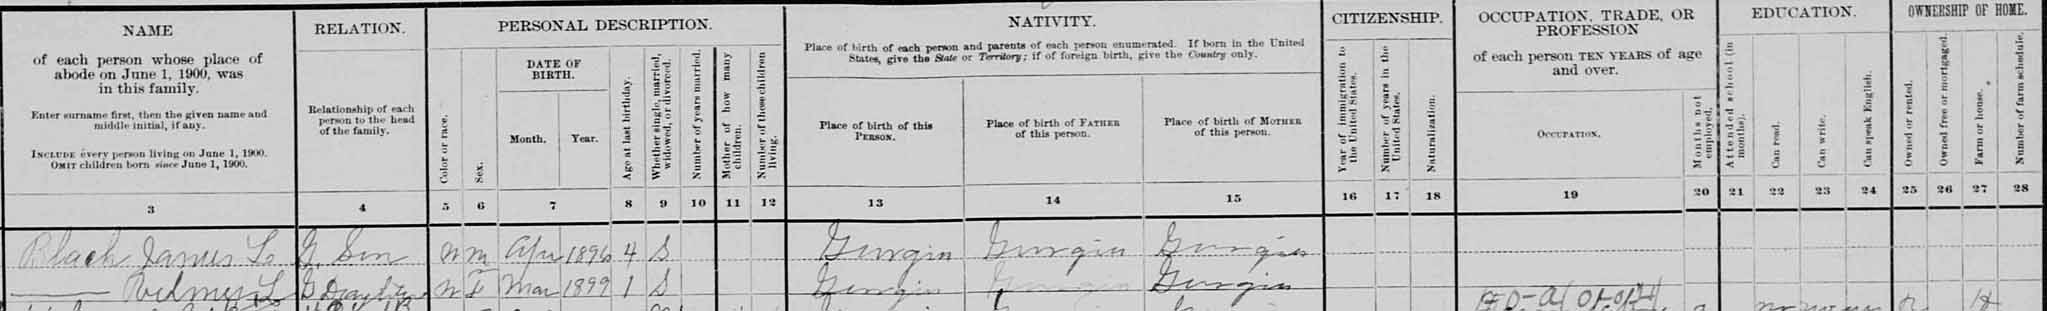 NAME
of each person whose place of
abode on June 1, 1900, was
in this family.
Enter surname first, then the given name and
middle initial, if any.
INCLUDE every person living on June 1, 1900.
OMIT children born since June 1, 1900.
RELATION.
Relationship of each
person to the head
of the family.
PERSONAL DESCRIPTION.
Color or race.
Sex.
DATE OF
BIRTH.
Month.
Year.
Age at last birthday.
Whether single, married,
widowed, or divorced.
Number of years married.
Mother of how many
children.
Number of those children
living.
NATIVITY.
Place of birth of each person and parents of each person enumerated. If born in the United
States, give the State or Territory; if of foreign birth, give the Country only.
Place of birth of this
PERSON.
Place of birth of FATHER
of this person.
Place of birth of MOTHER
of this person.
CITIZENSHIP.
Year of immigration to
the United States.
Number of years in the
United States.
Naturalization.
OCCUPATION, TRADE, OR
PROFESSION
of each person TEN YEARS of age
and over.
OCCUPATION.
Months not
employed.
EDUCATION.
Attended school (in
months).
Can read.
Can write.
Can speak English.
OWNERSHIP OF HOME.
Owned or rented.
Owned free or mortgaged.
Farm or house.
Number of farm schedule.
3 4 5 6 7 8 9 10 11 12 13 14 15 16 17 18 19 20 21 22 23 24 25 26 27 28
Black James L G. Son W M Apr 1896 4 S Georgia Georgia Georgia
L G Daughter W F Mar 1899 1 S Georgia Georgia Georgia